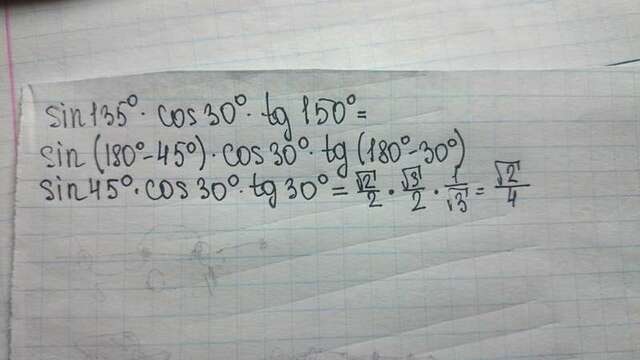 sin135°·cos30°·tg150°=
sin(180°-45°)·cos30°·tg(180°-30°)
sin45°·cos30°·tg30°=√2/2·√3/2·1/√3=√2/4